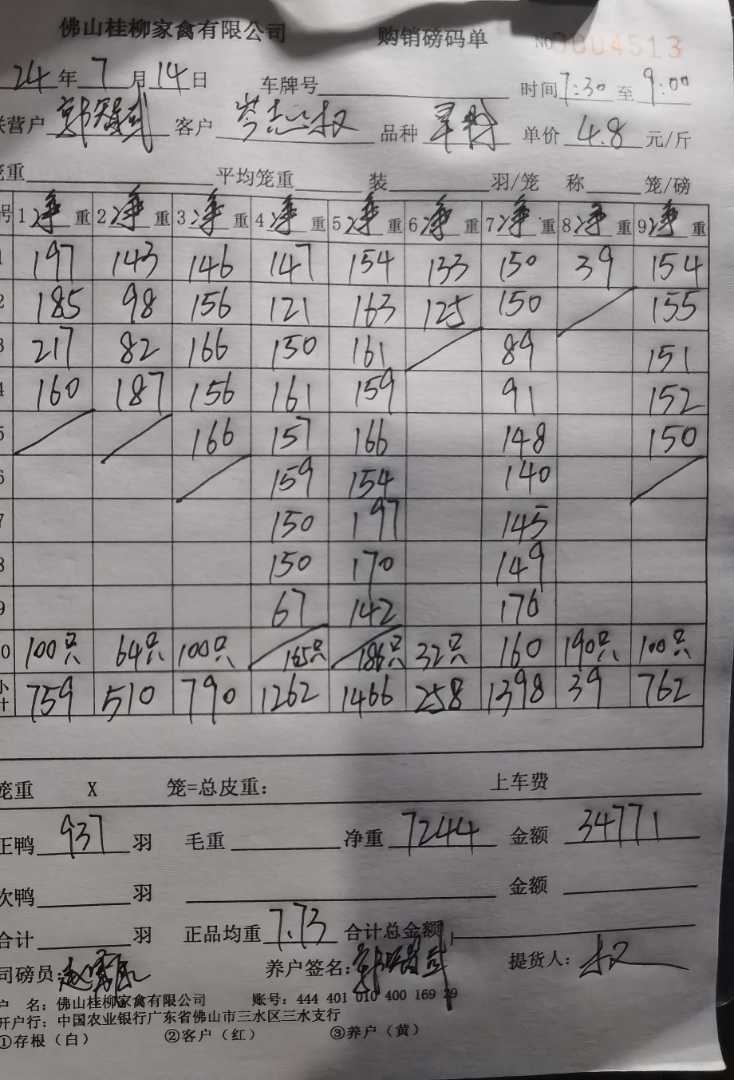 佛山桂柳家禽有限公司 购销磅码单 No 0004513
24年7月14日 车牌号 时间7:30至9:00
联营户 客户 岑志权 品种 单价4.8元/斤
笼重 平均笼重 装 羽/笼 称 笼/磅
号 1净重 2净重 3净重 4净重 5净重 6净重 7净重 8净重 9净重
1 197 143 146 147 154 133 150 39 154
2 185 98 156 121 163 125 150 155
3 217 82 166 150 161 89 151
4 160 187 156 161 159 91 152
5 166 157 166 148 150
6 159 154 140
7 150 197 145
8 150 170 149
9 67 142 176
10 100只 64只 100只 165只 186只 32只 160 190只 100只
小计 759 510 790 1262 1466 258 1398 39 762
笼重 X 笼=总皮重: 上车费
正鸭 937 羽 毛重 净重 7244 金额 34771
次鸭 羽 金额
合计 羽 正品均重 7.73 合计总金额
司磅员: 养户签名: 提货人: 权
户 名: 佛山桂柳家禽有限公司 账号: 444 401 010 400 169 29
开户行: 中国农业银行广东省佛山市三水区三水支行
①存根(白) ②客户(红) ③养户(黄)